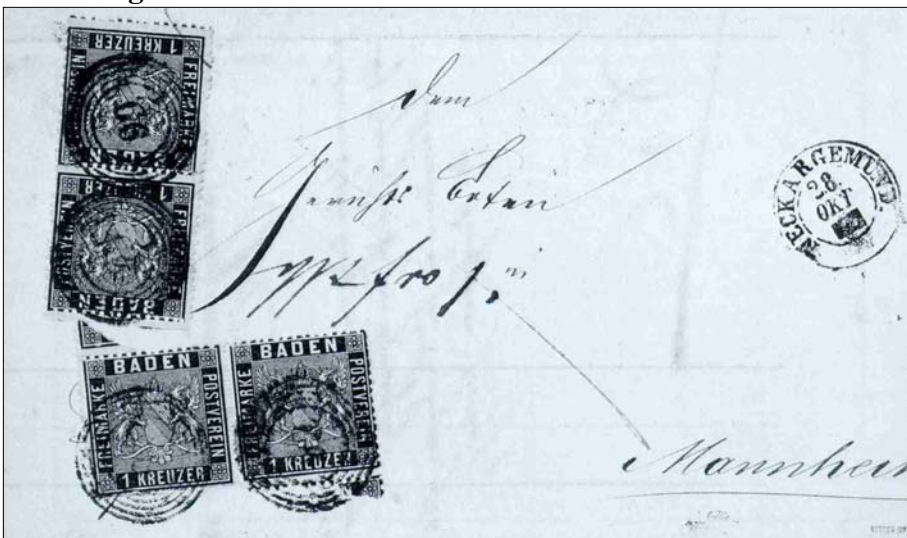 1 KREUZER
FREIMARKE
BADEN
1 KREUZER
FREIMARKE
POSTVEREIN
BADEN
BADEN
FREIMARKE
POSTVEREIN
1 KREUZER
BADEN
FREIMARKE
POSTVEREIN
1 KREUZER
Dem
Gerichts Boten
NECKARGEMÜND.
28.
OKT
Mannheim